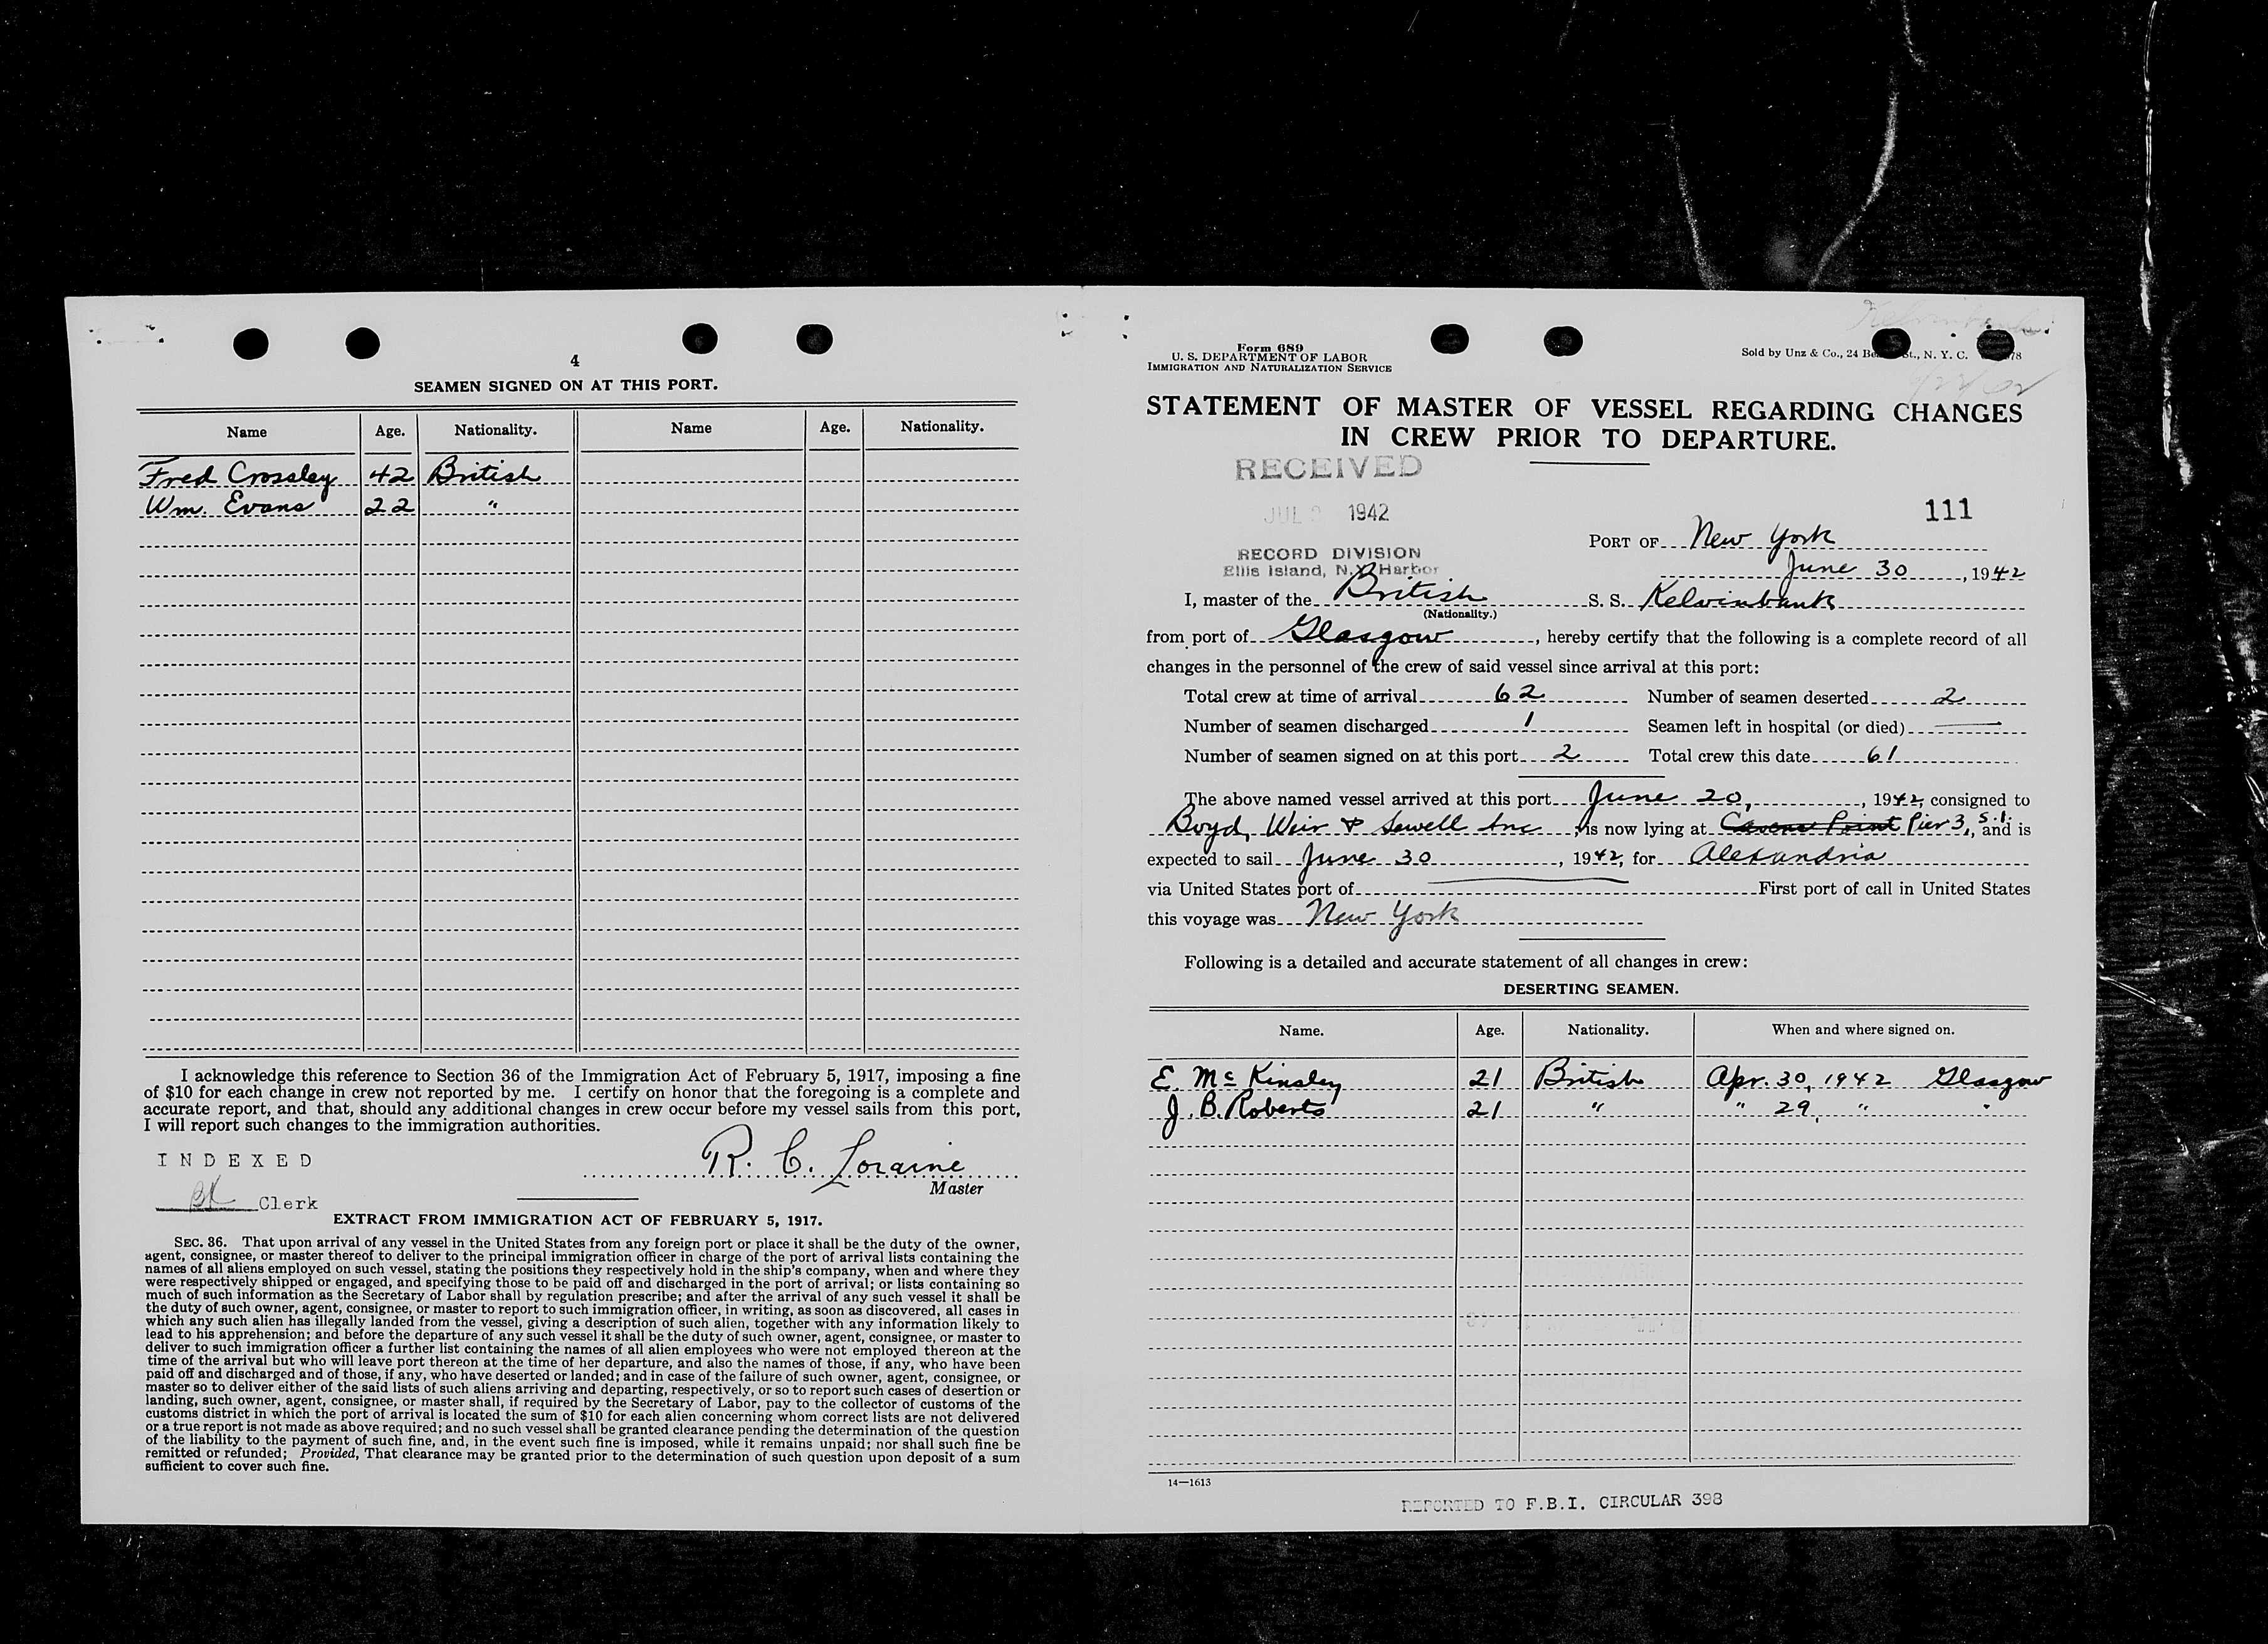 4
SEAMEN SIGNED ON AT THIS PORT.
Name Age. Nationality. Name Age. Nationality.
Fred Crossley 42 British
Wm. Evans 22 "
I acknowledge this reference to Section 36 of the Immigration Act of February 5, 1917, imposing a fine
of $10 for each change in crew not reported by me. I certify on honor that the foregoing is a complete and
accurate report, and that, should any additional changes in crew occur before my vessel sails from this port,
I will report such changes to the immigration authorities.
INDEXED
R. C. Loraine
Master
Clerk
EXTRACT FROM IMMIGRATION ACT OF FEBRUARY 5, 1917.
SEC. 36. That upon arrival of any vessel in the United States from any foreign port or place it shall be the duty of the owner,
agent, consignee, or master thereof to deliver to the principal immigration officer in charge of the port of arrival lists containing the
names of all aliens employed on such vessel, stating the positions they respectively hold in the ship's company, when and where they
were respectively shipped or engaged, and specifying those to be paid off and discharged in the port of arrival; or lists containing so
much of such information as the Secretary of Labor shall by regulation prescribe; and after the arrival of any such vessel it shall be
the duty of such owner, agent, consignee, or master to report to such immigration officer, in writing, as soon as discovered, all cases in
which any such alien has illegally landed from the vessel, giving a description of such alien, together with any information likely to
lead to his apprehension; and before the departure of any such vessel it shall be the duty of such owner, agent, consignee, or master to
deliver to such immigration officer a further list containing the names of all alien employees who were not employed thereon at the
time of the arrival but who will leave port thereon at the time of her departure, and also the names of those, if any, who have been
paid off and discharged and of those, if any, who have deserted or landed; and in case of the failure of such owner, agent, consignee, or
master so to deliver either of the said lists of such aliens arriving and departing, respectively, or so to report such cases of desertion or
landing, such owner, agent, consignee, or master shall, if required by the Secretary of Labor, pay to the collector of customs of the
customs district in which the port of arrival is located the sum of $10 for each alien concerning whom correct lists are not delivered
or a true report is not made as above required; and no such vessel shall be granted clearance pending the determination of the question
of the liability to the payment of such fine, and, in the event such fine is imposed, while it remains unpaid; nor shall such fine be
remitted or refunded; Provided, That clearance may be granted prior to the determination of such question upon deposit of a sum
sufficient to cover such fine.
Form 689
U. S. DEPARTMENT OF LABOR
IMMIGRATION AND NATURALIZATION SERVICE
Sold by Unz & Co., 24 St., N. Y. C.
STATEMENT OF MASTER OF VESSEL REGARDING CHANGES
IN CREW PRIOR TO DEPARTURE.
RECEIVED
JUL 1942
RECORD DIVISION
Ellis Island, N.Y. Harbor
111
PORT OF New York
June 30, 1942
I, master of the British S. S. Kelvinbank
(Nationality.)
from port of Glasgow, hereby certify that the following is a complete record of all
changes in the personnel of the crew of said vessel since arrival at this port:
Total crew at time of arrival 62 Number of seamen deserted 2
Number of seamen discharged 1 Seamen left in hospital (or died)
Number of seamen signed on at this port 2 Total crew this date 61
The above named vessel arrived at this port June 20, 1942, consigned to
Boyd, Weir & Sewell Inc, is now lying at Cavens Point Pier 3, S.I., and is
expected to sail June 30, 1942, for Alexandria
via United States port of First port of call in United States
this voyage was New York
Following is a detailed and accurate statement of all changes in crew:
DESERTING SEAMEN.
Name. Age. Nationality. When and where signed on.
E. McKinsley 21 British Apr. 30, 1942 Glasgow
J. B. Roberts 21 " " 29, " "
14—1613
REPORTED TO F.B.I. CIRCULAR 398